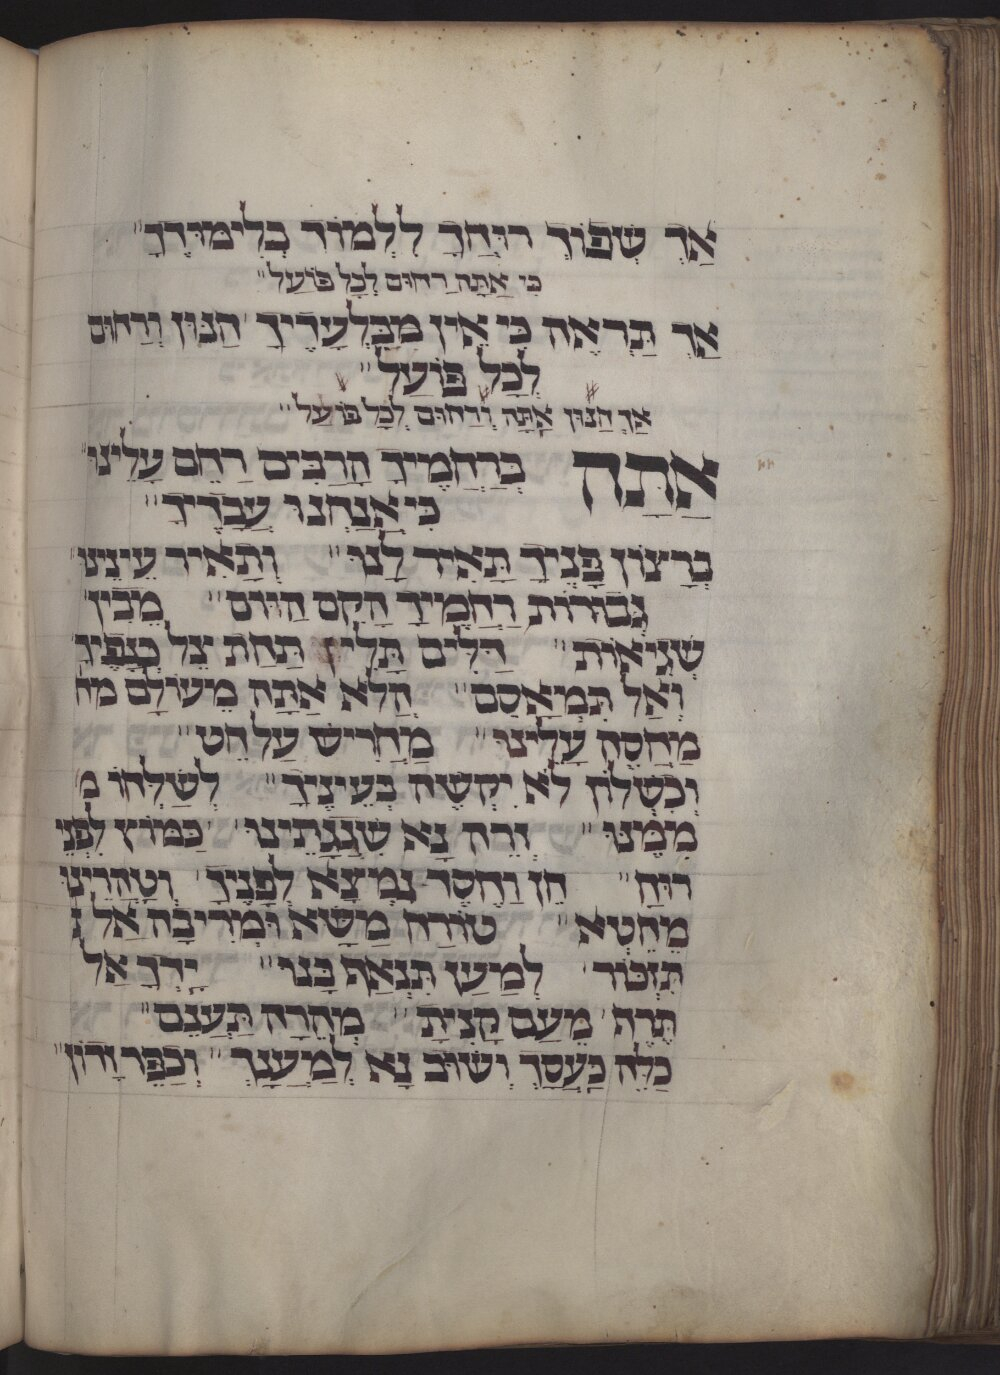 אַךְ שְׁפוֹךְ רוּחֲךָ לִלְמוֹד כְּלִימוּדֶךָ
כִּי אַתָּה רַחוּם לְכָל פּוֹעַל
אַךְ תִּרְאֶה כִּי אֵין מִבַּלְעָדֶיךָ חַנּוּן וְרַחוּם
לְכָל פּוֹעַל
אַךְ חַנּוּן אַתָּה וְרַחוּם לְכָל פּוֹעַל
אַתָּה בְּרַחֲמֶיךָ הָרַבִּים רַחֵם עָלֵינוּ
כִּי אֲנַחְנוּ עֲבָדֶיךָ
בְּרָצוֹן פָּנֶיךָ תָּאִיר לָנוּ וְתָאִיר עֵינֵינוּ
גְּבוּרוֹת רַחֲמֶיךָ הָקֵם הַיּוֹם מֵבִין
שְׁגִיאוֹת דַּלִּים תַּחַת צֵל כְּנָפֶיךָ
וְאַל תִּמְאָסֵם הֲלֹא אַתָּה מֵעוֹלָם
מַחְסֶה עָלֵינוּ מַחֲרִישׁ עַל חֵט
וְכִשָּׁלוֹן לֹא יִקְשֶׁה בְּעֵינֶיךָ
מִמֶּנּוּ זְרֵה נָא שִׁגְגָתֵינוּ כַּמּוֹץ לִפְנֵי
רוּחַ חֵן וָחֶסֶד נִמְצָא לְפָנֶיךָ וְטַהֲרֵינוּ
מֵחֵטְא טוֹרַח מַשָּׂא וּמְרִיבָה אַל
תִּזְכּוֹר לְמַעַן תִּנְאַף בָּנוּ יָדְךָ אַל
תֶּרֶף מֵעַם קָנִיתָ מְהֵרָה תַּעֲנֵם
כַּלֵּה כַּעֲסָךְ וְשׁוּב נָא לְמַעֲנָךְ וְכַפֵּר זָדוֹן